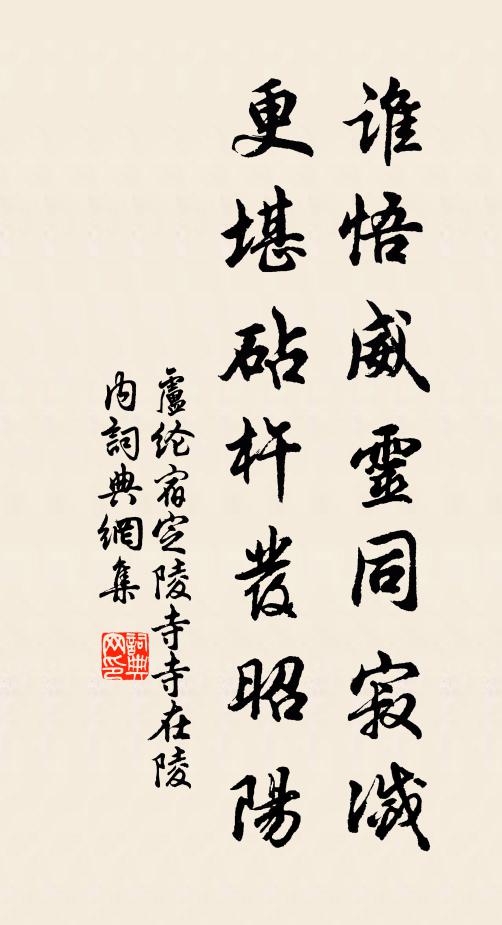 誰悟威靈同寂滅
更堪砧杵發昭陽
盧纶宿定陵寺寺在陵
內詞典網集
詞典
网印